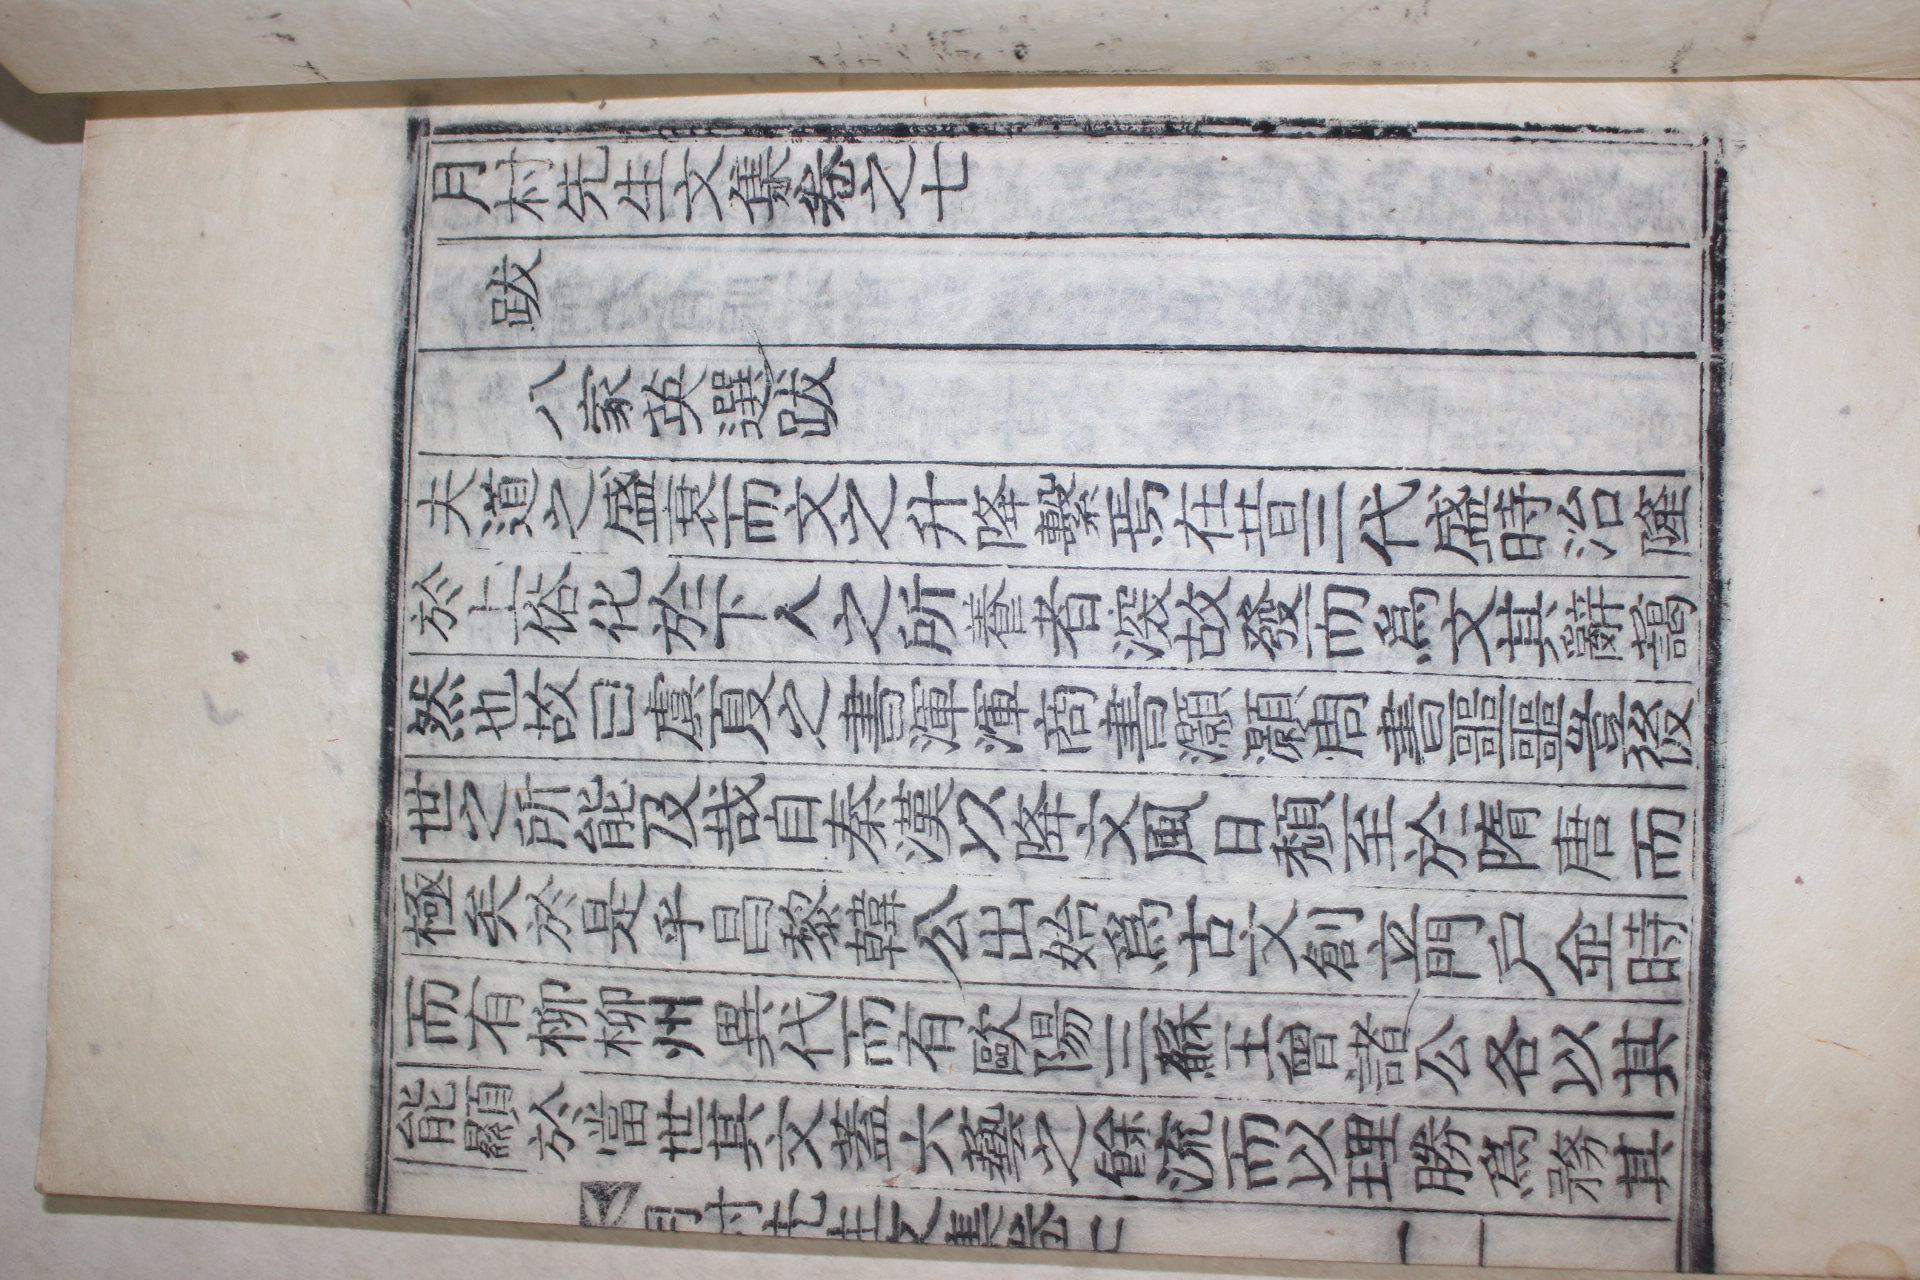 月村先生文集卷之七
跋
八家英選跋
夫道之盛衰而文之升降繫焉在昔三代盛時治隆
於上俗化於下人之所養者深故發而爲文其辭藹
然也故曰虞夏之書渾渾商書灝灝周書噩噩豈後
世之所能及哉自秦漢以降文風日頹至於隋唐而
極矣於是乎昌黎韓公出始爲古文創立門戶並時
而有柳柳州異代而有歐陽三蘇王曾諸公各以其
能顯於當世其文蓋六藝之餘流而以理勝爲務其
月村先生文集卷七
一